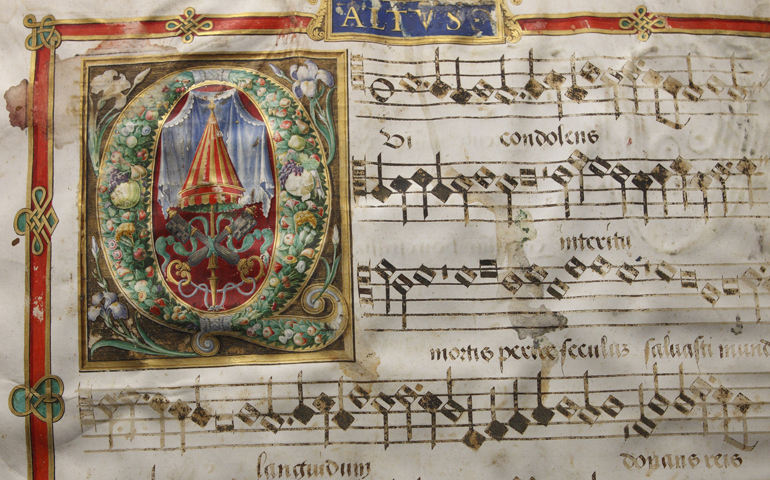 ALTVS
QVi condolens
interitu
mortis perire seculuz saluasti mund
languidum donans reis